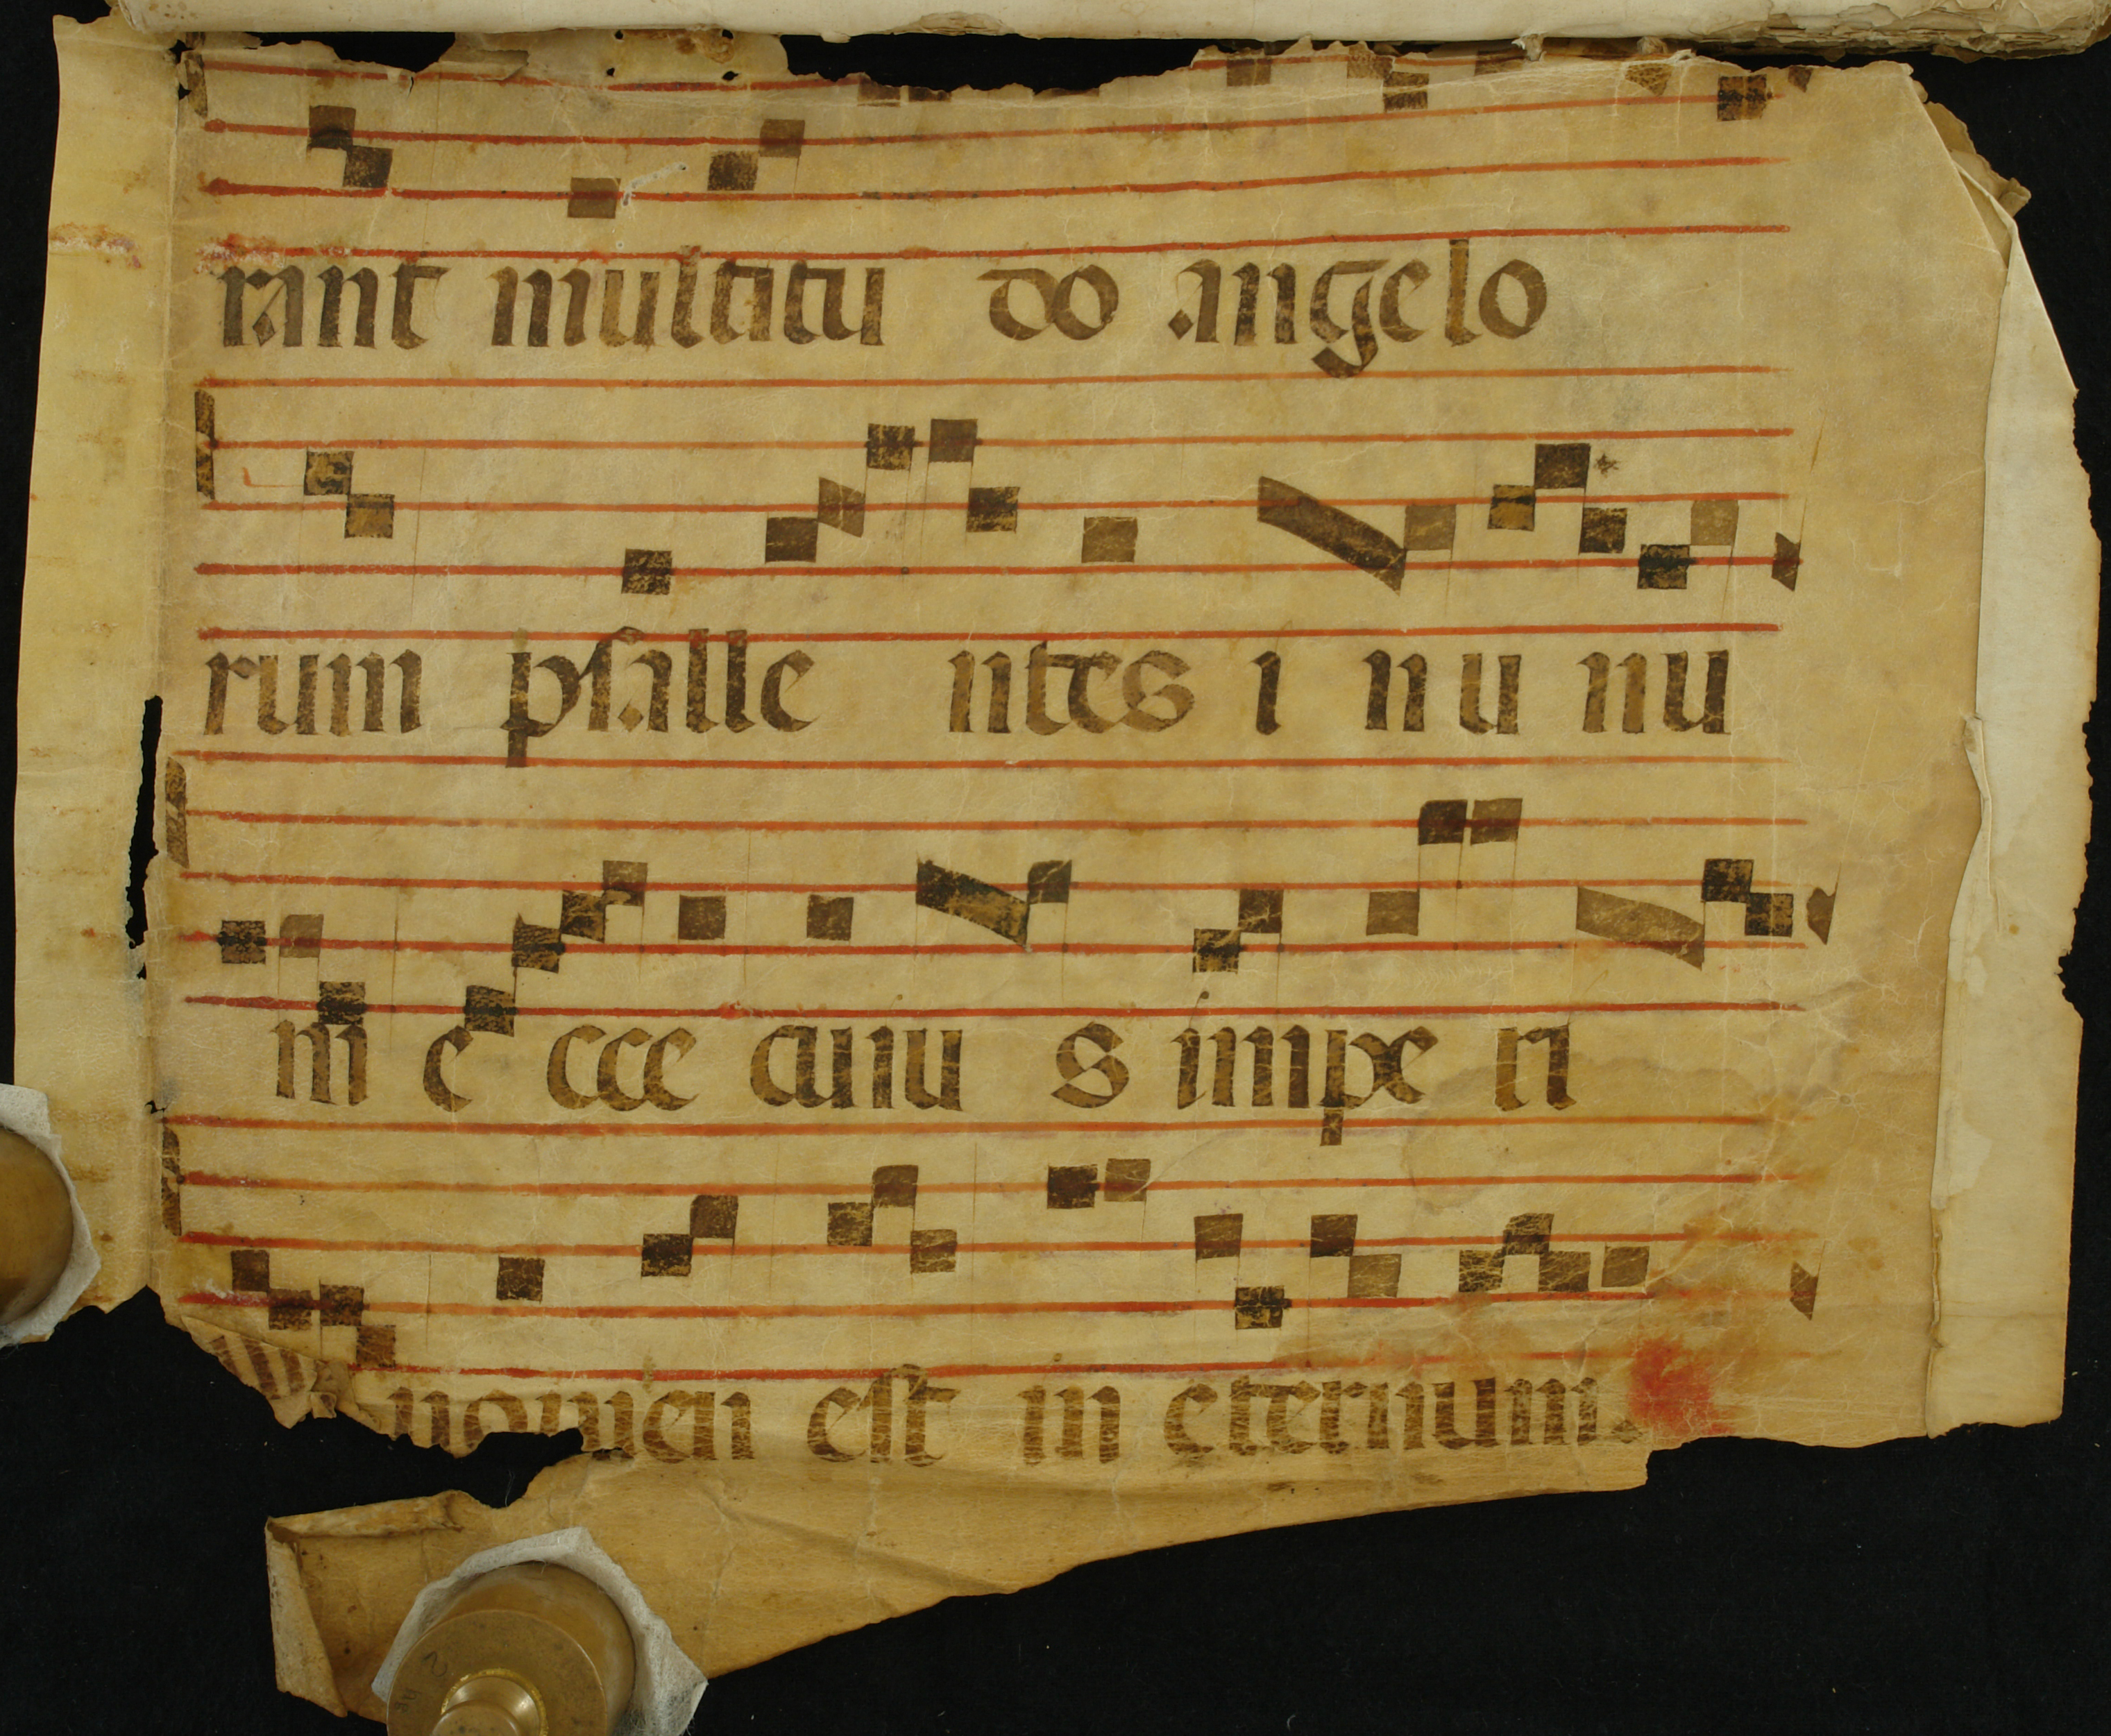 rant multitu do angelo
rum psalle ntes i n u nu
m e cce cuiu s impe ri
nomen est in eternum.